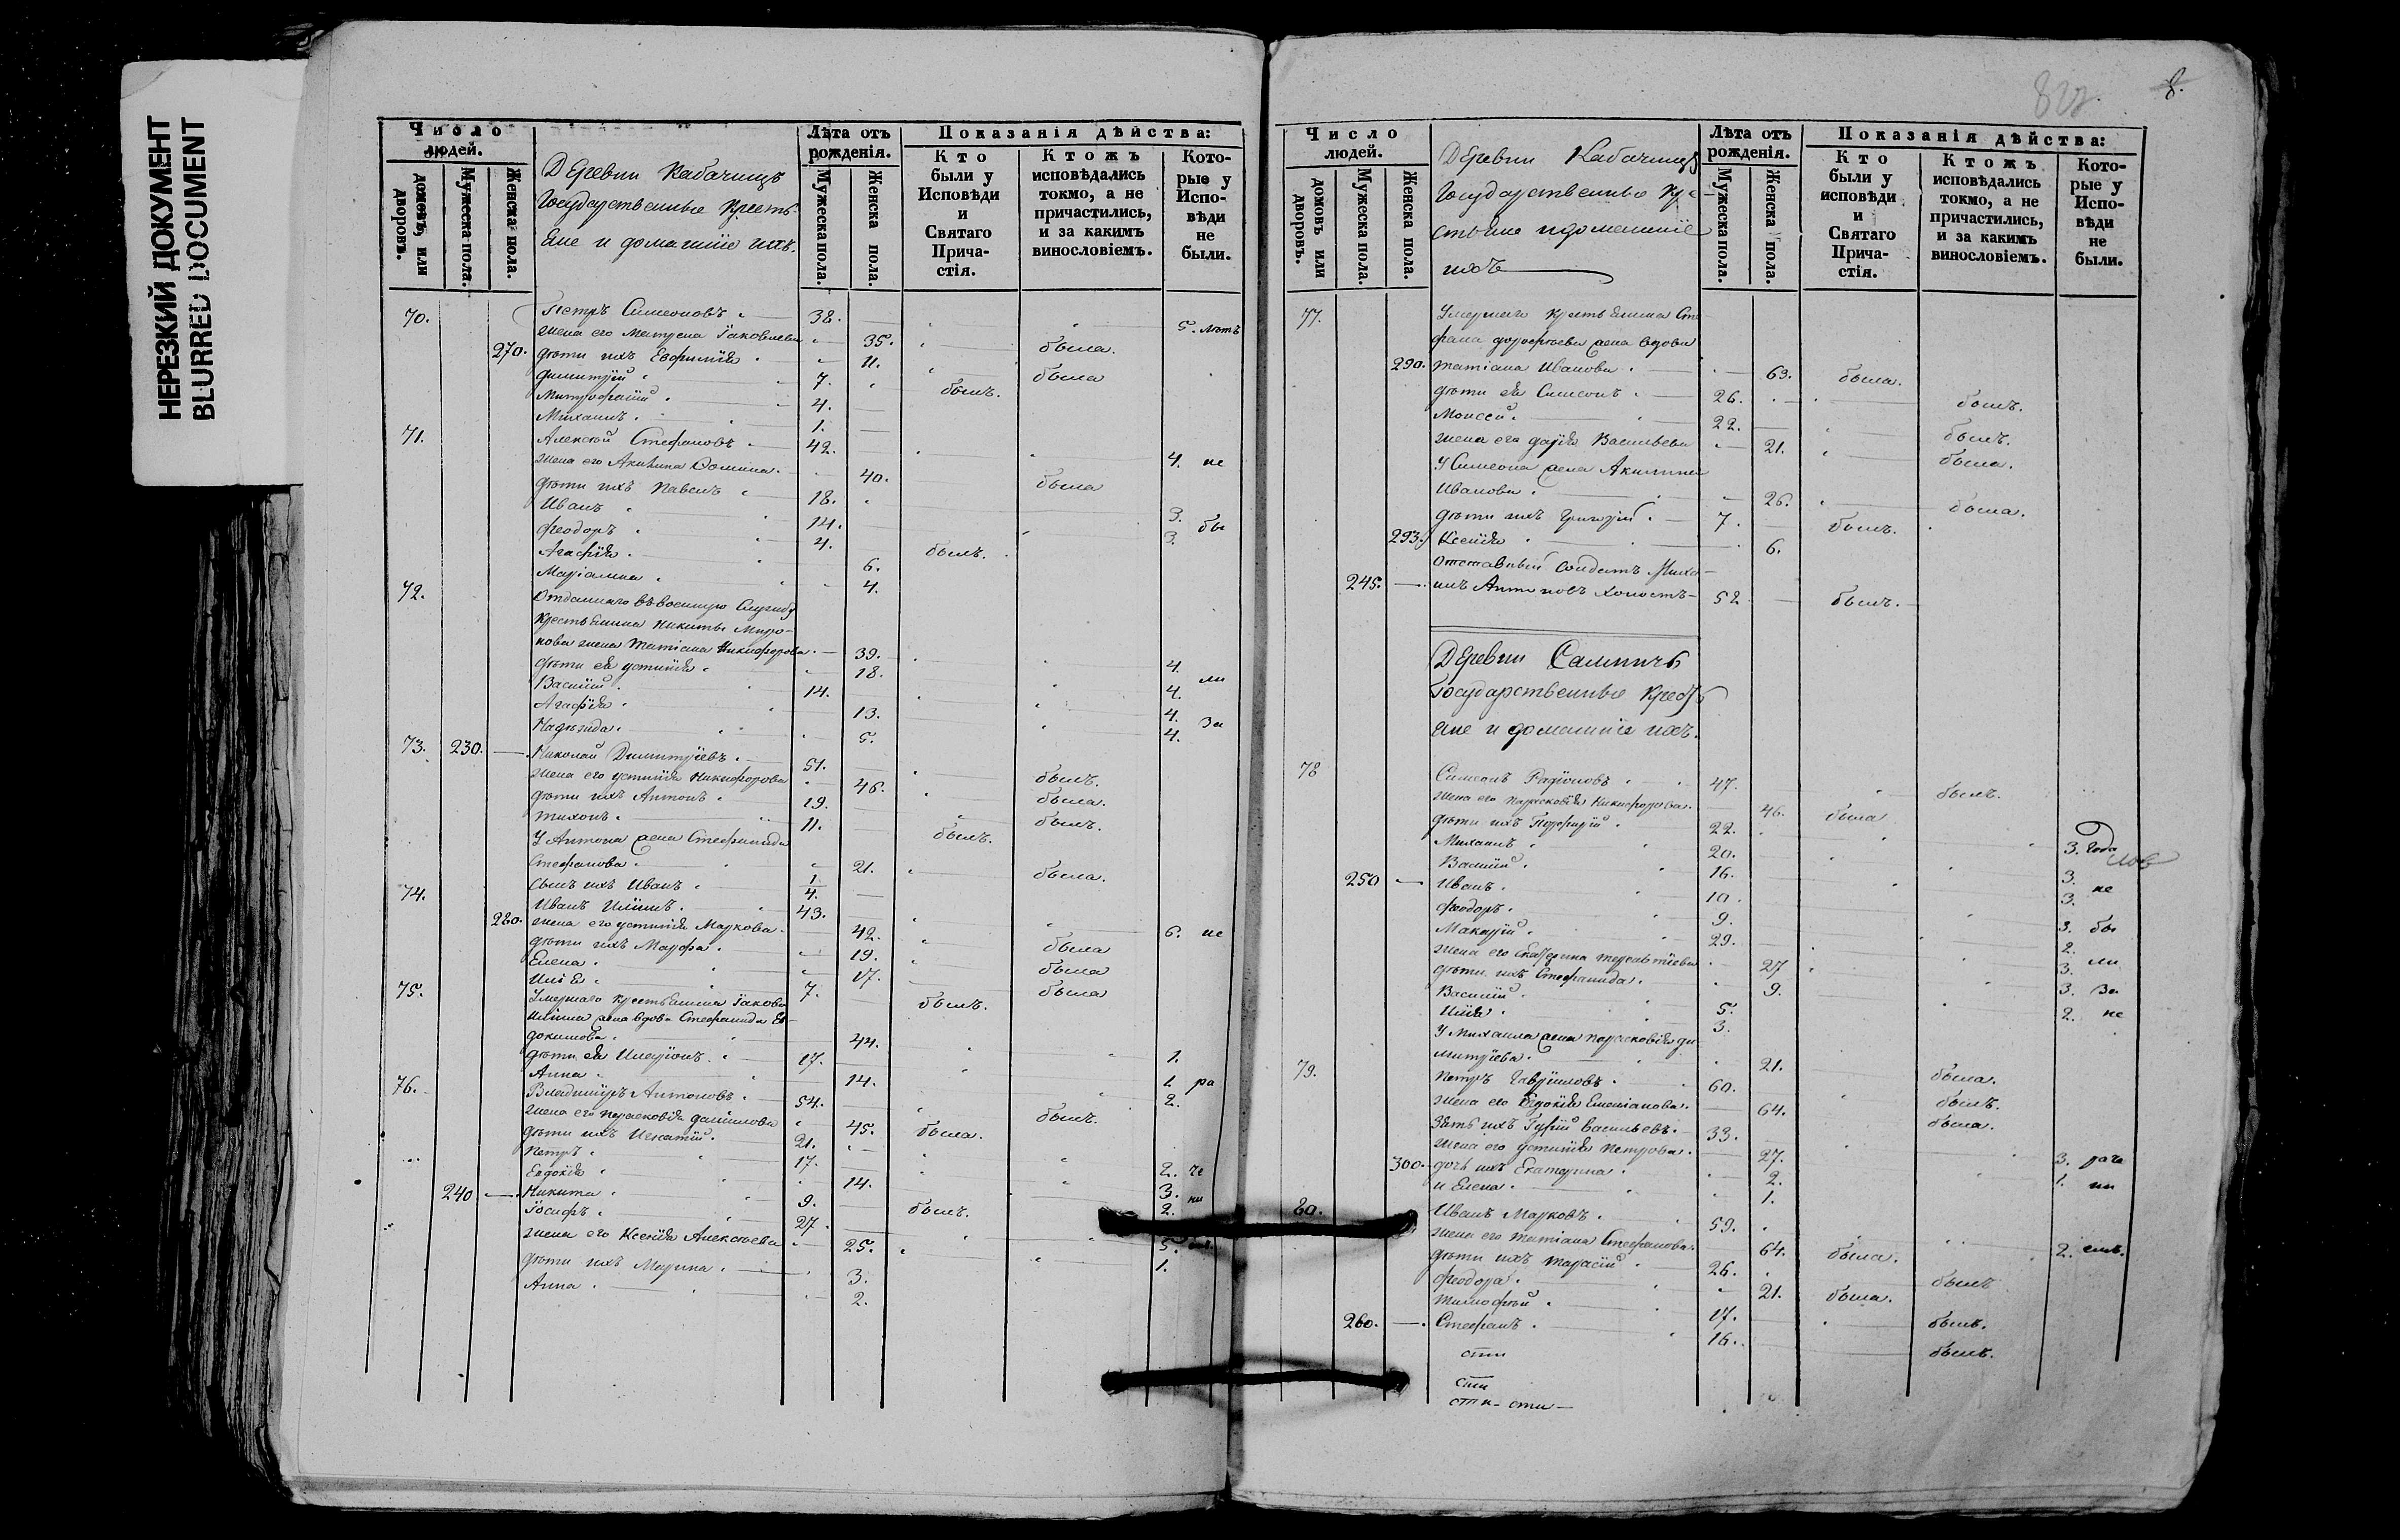 НЕРЕЗКИЙ ДОКУМЕНТ
BLURRED DOCUMENT
Число людей.
домовъ, или дворовъ.
Мужеска пола.
Женска пола.
Деревни Кабачищъ
Государственные Кресть-
яне и домашніе ихъ.
Лѣта отъ рожденія.
Мужеска пола.
Женска пола.
Показанія дѣйства:
Кто были у Исповѣди и Святаго Прича-стія.
Ктожъ исповѣдались токмо, а не причастились, и за какимъ винословіемъ.
Кото-рые у Испо-вѣди не были.
70. Петръ Симеоновъ 38. 5. лѣтъ
жена его Матрена Іаковлева 35. была.
270. дѣти ихъ Евфимія 11. была
Димитрій 7. былъ.
Митрофаній 4.
Михаилъ 1.
71. Алексѣй Стефановъ 42. 4. не
жена его Акилина Фомина 40. была
дѣти ихъ Павелъ 18. 3.
Иванъ 14. 3. бы
Феодоръ 4. былъ.
Агафія 6.
Маріамна 4.
72. Отданнаго въ военную Службу
крестьянина Никиты Миро-
нова жена Татіана Никифорова 39. 4.
дѣти ея Устинія 18. 4. ли
Василій 14. 4.
Агафія 13. 4. За
Надежда 5.
73. 230. Николай Димитріевъ 51. былъ.
жена его Устинія Никифорова 46. была.
дѣти ихъ Антонъ 19. былъ.
Тихонъ 11. былъ.
У Антона жена Стефанида
Стефанова 21. была.
сынъ ихъ Иванъ 1/4.
74. Иванъ Илиинъ 43. 6. не
280. жена его Устинія Маркова 42. была
дѣти ихъ Марфа 19. была
Елена 17. была
Илія 7. былъ.
75. Умершаго крестьянина Іакова
Иліина жена вдова Стефанида Ев-
докимова 44. 1.
дѣти ея Иларіонъ 17. 1. ра
Анна 14. 2.
76. Владимиръ Антоновъ 54. былъ.
жена его Парасковія Даніилова 45. была.
дѣти ихъ Игнатій 21. 2. че
Петръ 17. 3.
Евдокія 14. 2. ни
240. Никита 9. былъ.
Іосифъ 27. 5.
жена его Ксенія Алексѣева 25. 1.
дѣти ихъ Марина 3.
Анна 2.
8.
Число людей.
домовъ или дворовъ.
Мужеска пола.
Женска пола.
Деревни Кабачищъ
Государственные Кре-
стьяне и домашніе
ихъ
Лѣта отъ рожденія.
Мужеска пола.
Женска пола.
Показанія дѣйства:
Кто были у исповѣди и Святаго Прича-стія.
Ктожъ исповѣдались токмо, а не причастились, и за какимъ винословіемъ.
Кото-рые у Испо-вѣди не были.
77. Умершаго крестьянина Сте-
фана Дорофѣева жена вдова
290. Татіана Иванова 63. была.
дѣти ея Симеонъ 26. былъ.
Моисей 22. былъ.
жена его Дарія Васильева 21. была.
У Симеона жена Акилина
Иванова 26. была.
дѣти ихъ Григорій 7. былъ.
293. Ксенія 6.
Отставный Солдатъ Миха-
245. илъ Антоновъ холостъ 52 былъ.
Деревни Саличъ
Государственные Крест
яне и домашніе ихъ.
78 Симеонъ Радіоновъ 47. былъ.
жена его Парасковія Никифорова 46. была
дѣти ихъ Порфирій 22. 3. года
Михаилъ 20. 3.
Василій 16. 3. не
250 Иванъ 10.
Феодоръ 9. 3. бы
Макарій 29. 2.
жена его Екатерина Терентіева 27 3. ли
дѣти ихъ Стефанида 9. 3. За
Василій 5. 2. не
Илія 3.
У Михаила жена Парасковія Ди
митріева 21. была.
79. Петръ Гавриловъ 60. былъ.
жена его Евдокія Емеліанова 64. была.
Зять ихъ Гурій Васильевъ 33. 3. раче
жена его Устинія Петрова 27. 1. ни
300. дочь ихъ Екатерина 2.
и Елена 1.
80. Иванъ Марковъ 59. 2. емъ.
жена его Татіана Стефанова 64. была.
дѣти ихъ Тарасій 26. былъ
Феодора 21. была.
Тимофѣй 17. былъ.
260. Стефанъ 16. былъ.